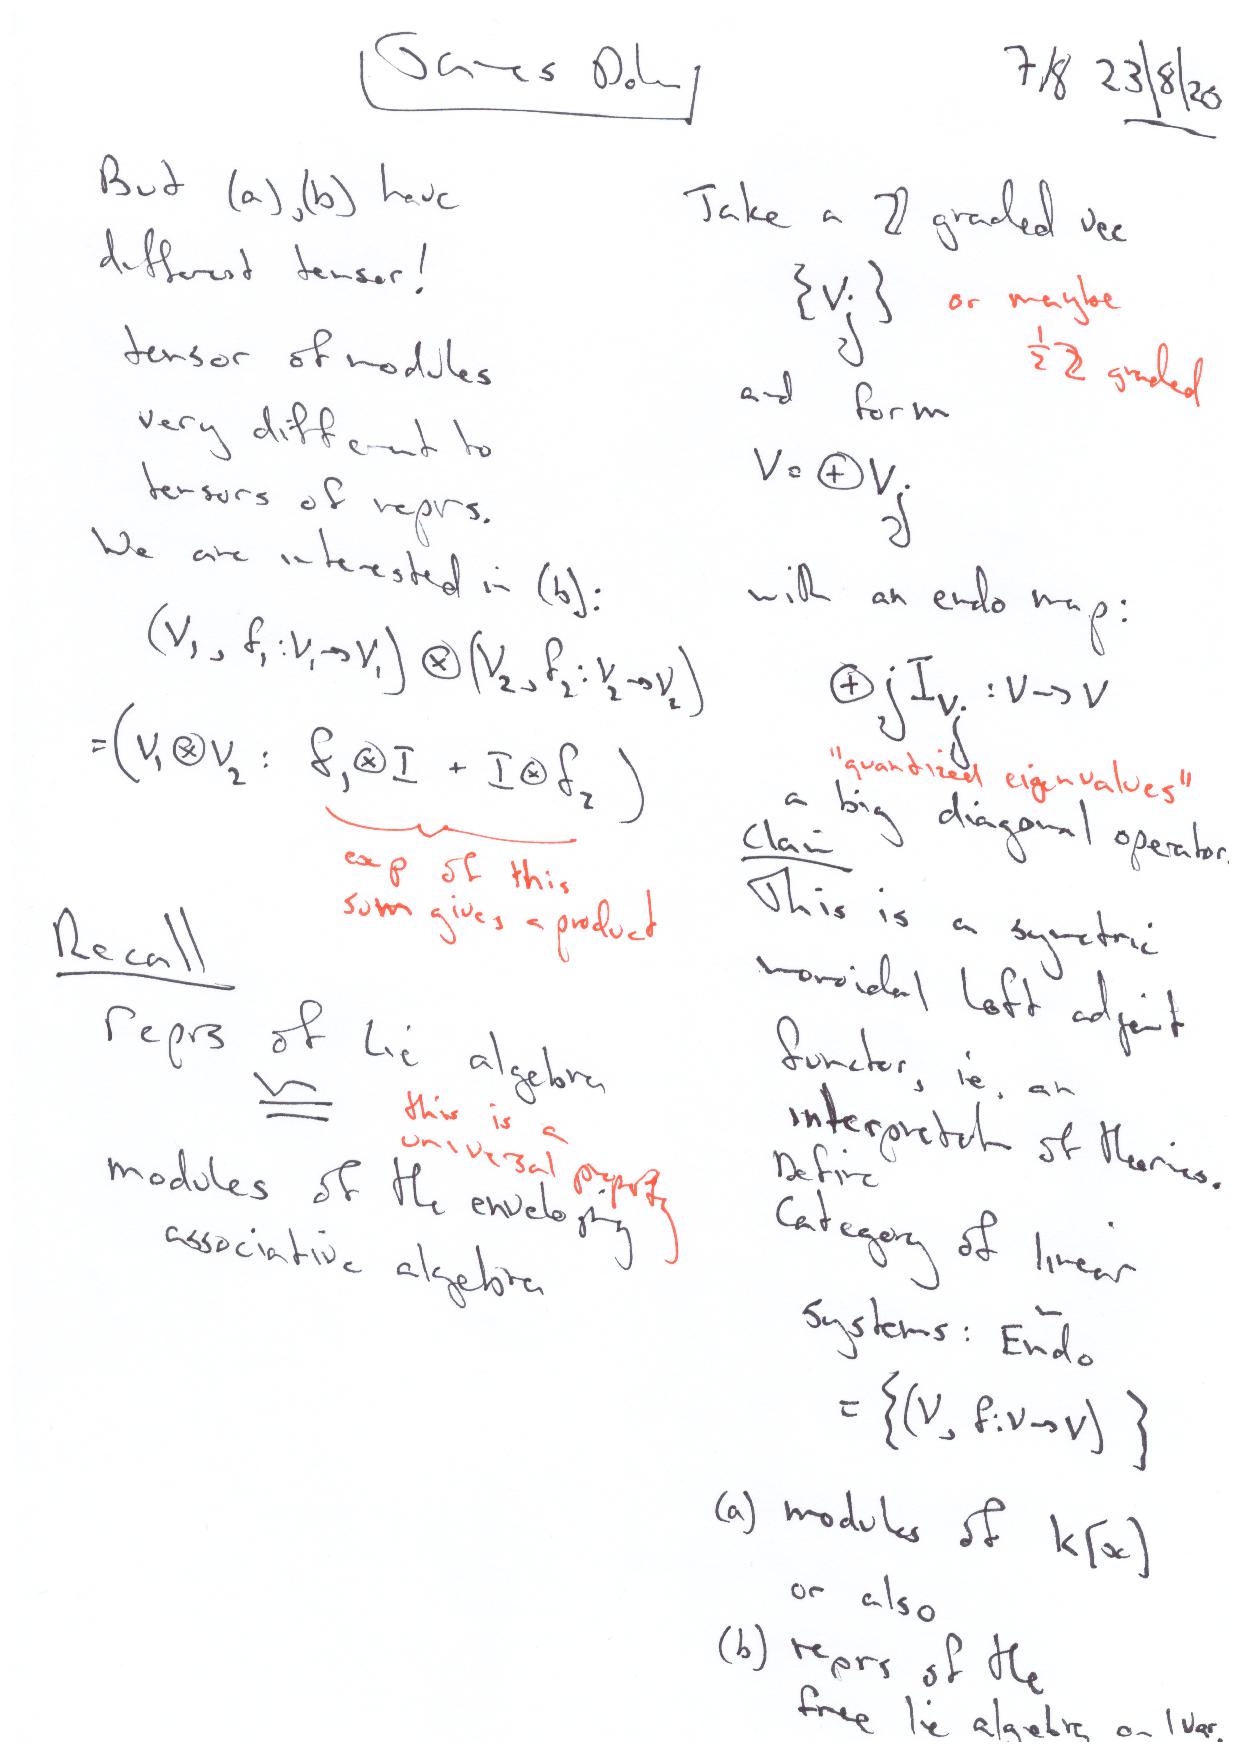 James Dolan
7/8 23/8/20
But (a), (b) have
different tensor!
tensor of modules
very different to
tensors of reprs.
We are interested in (b):
(V₁, f₁:V₁→V₁) ⊗ (V₂, f₂:V₂→V₂)
=(V₁⊗V₂ : f₁⊗I + I⊗f₂)
exp of this
sum gives a product
Recall
reprs of Lie algebra
≅
this is a
universal property
modules of the enveloping
associative algebra
Take a ℤ graded vec
{Vⱼ} or maybe
½ℤ graded
and form
V = ⊕Vⱼ
with an endo map:
⊕ j I_Vⱼ : V→V
"quantized eigenvalues"
a big diagonal operator.
Claim
This is a symetric
monoidal left adjoint
functor, ie. an
interpretatn of theories.
Define
Category of linear
systems: Endo
= {(V, f:V→V)}
(a) modules of k[x]
or also
(b) reprs of the
free lie algebra on 1 var.